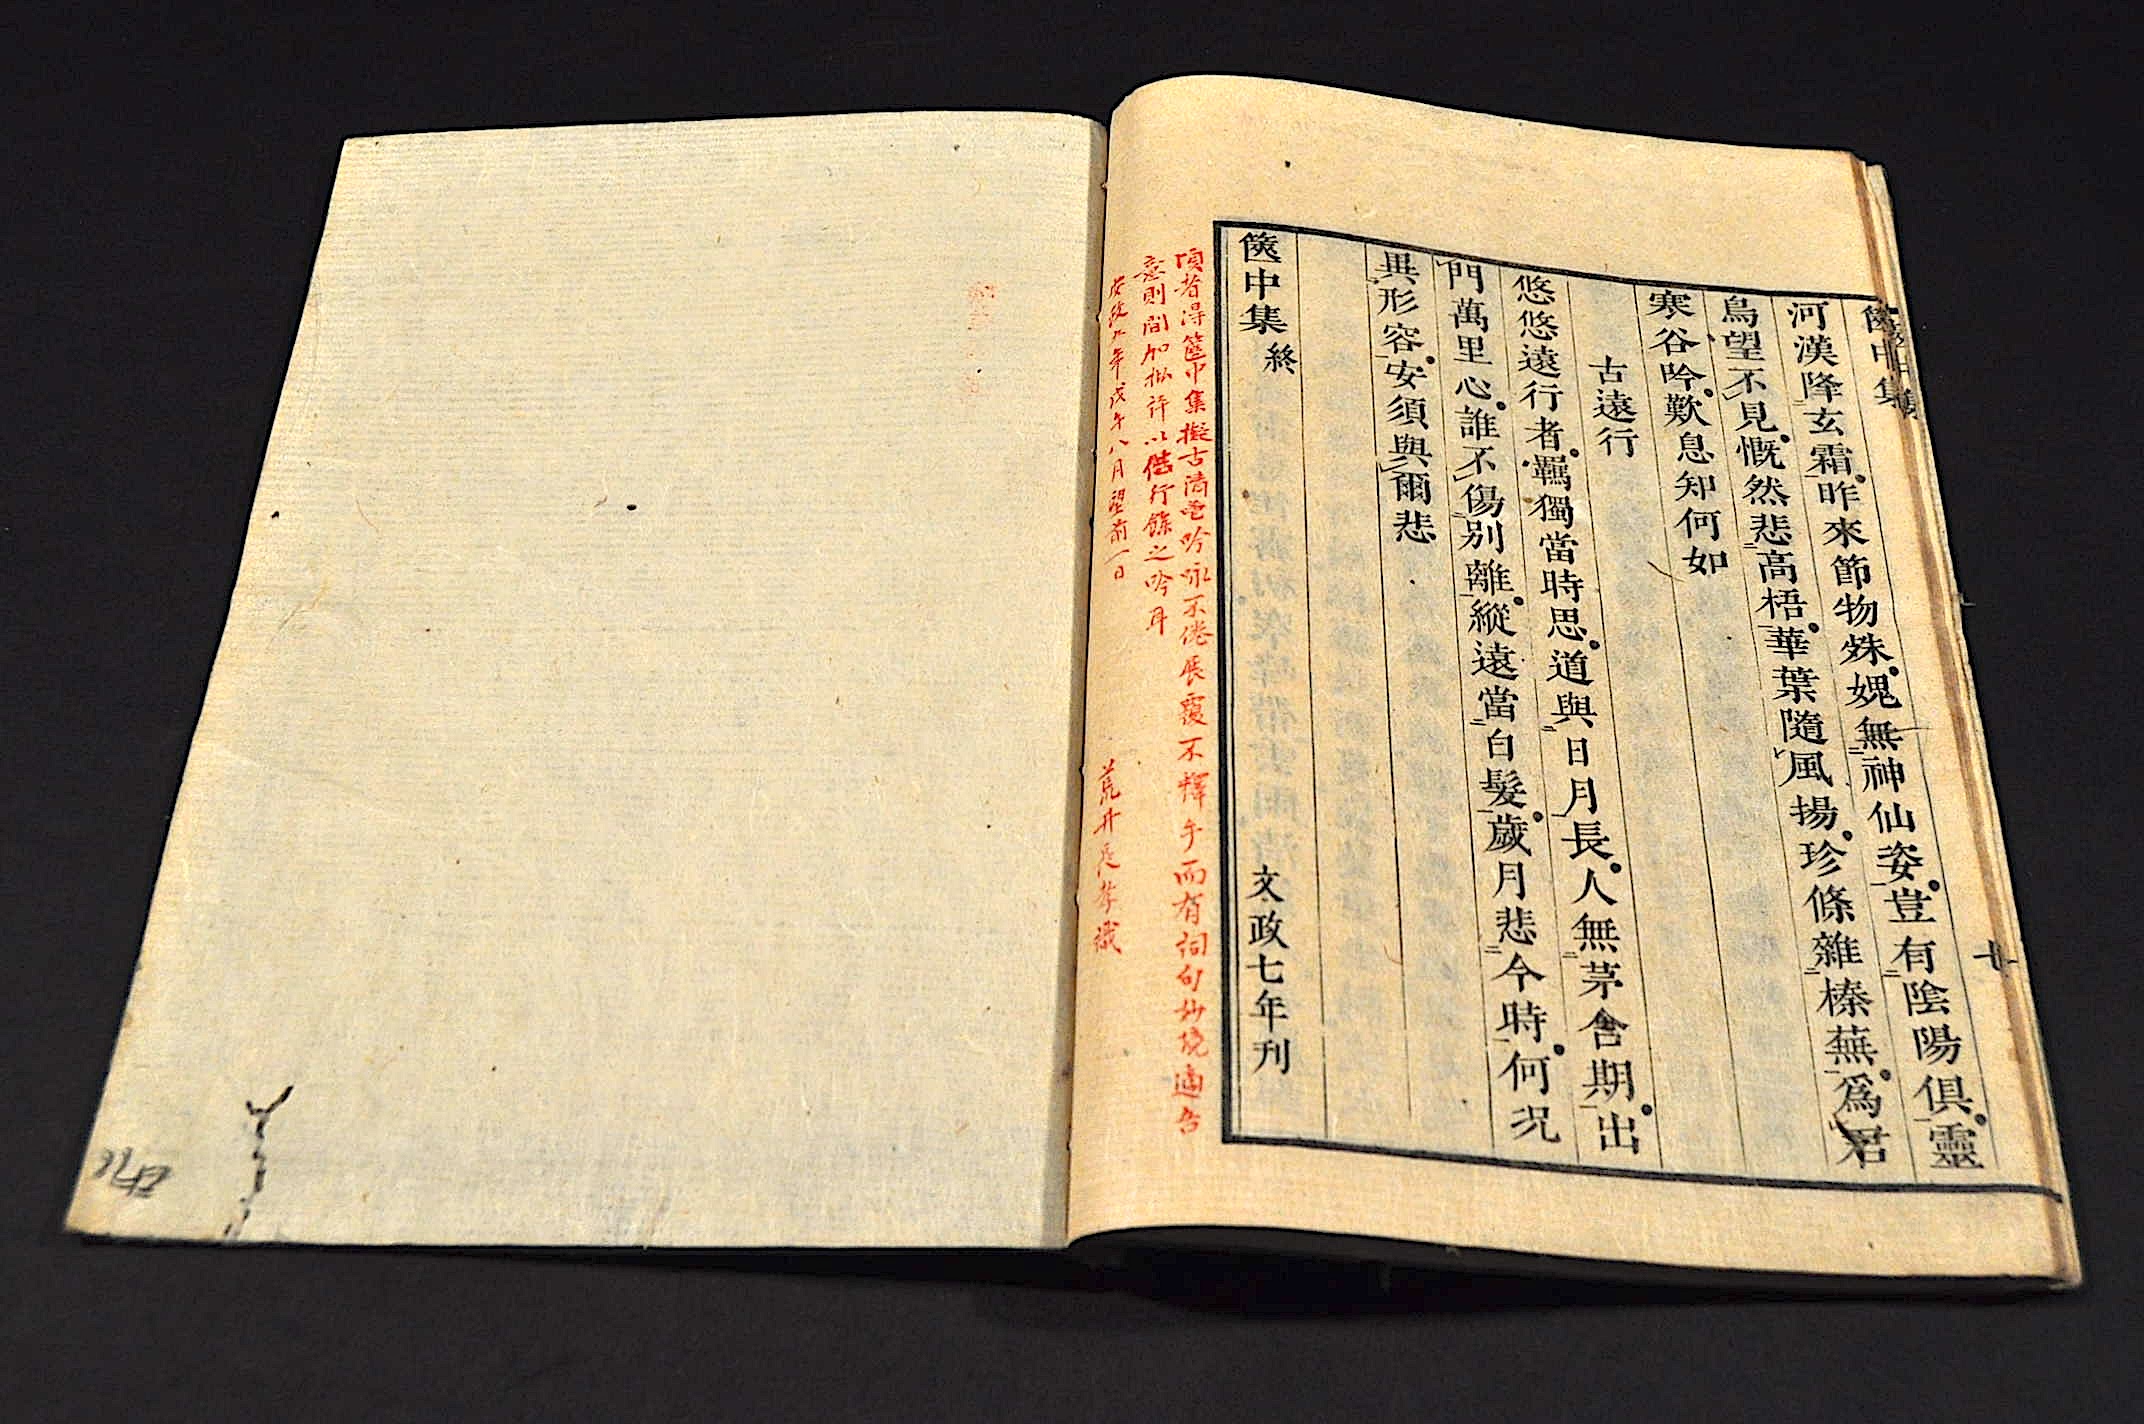 篋中集
河漢降玄霜昨來節物殊媿無神仙姿豈有陰陽俱靈
鳥望不見慨然悲高梧華葉隨風揚珍條雜榛蕪爲君
寒谷吟歎息知何如
古遠行
悠悠遠行者羈獨當時思道與日月長人無茅舍期出
門萬里心誰不傷別離縱遠當白髮歲月悲今時何況
異形容安須與爾悲
篋中集 終 文政七年刊
頃者得篋中集擬古清 吟咏不倦展覆不釋手而有詞句妙境適吾
意則間加批評以 行餘之吟耳
安政五年戊午八月望前一日 荒井 識